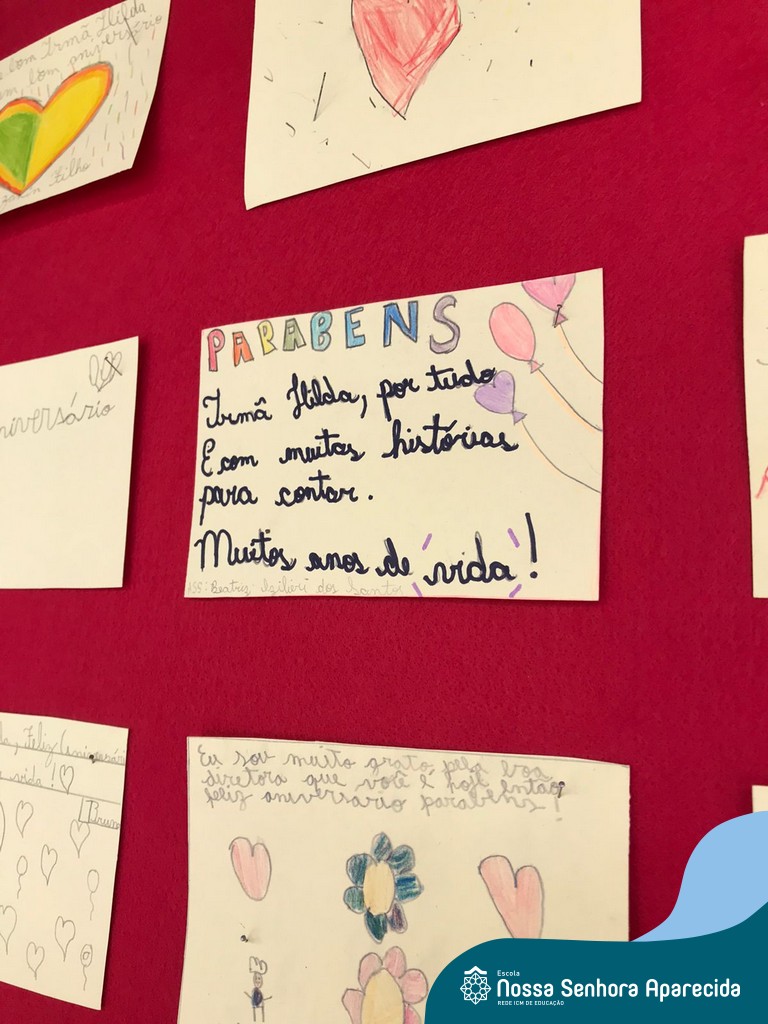 com Irmã Hilda
bom aniversário
Filho
PARABENS
Irmã Hilda, por tudo
E com muitas histórias
para contar.
Muitos anos de vida!
ASS: Beatriz dos Santos
niversário
Feliz
vida!
Brun
Eu sou muito grato pela boa
diretora que você é hoje então
feliz aniversário parabéns!
Escola
Nossa Senhora Aparecida
REDE ICM DE EDUCAÇÃO